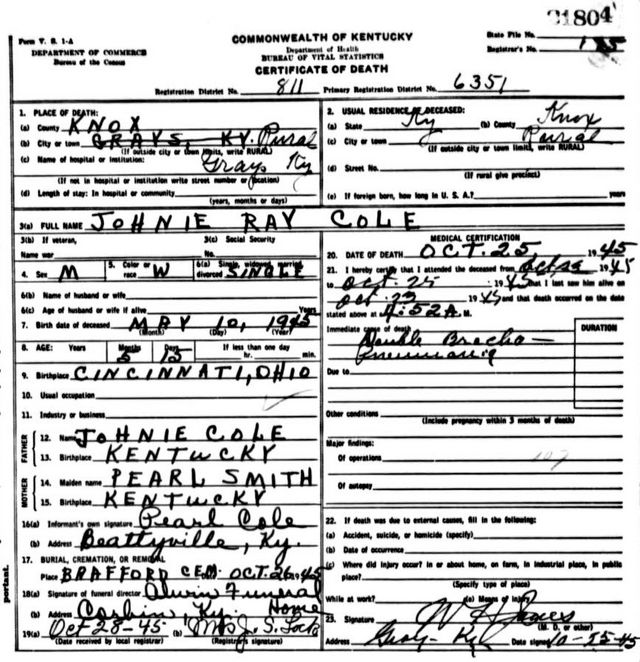 21804
Form V. S. 1-A
DEPARTMENT OF COMMERCE
Bureau of the Census
COMMONWEALTH OF KENTUCKY
Department of Health
BUREAU OF VITAL STATISTICS
CERTIFICATE OF DEATH
State File No.
Registrar's No.
Registration District No. 811 Primary Registration District No. 6351
1. PLACE OF DEATH:
(a) County KNOX
(b) City or town GRAYS, KY. Rural
(If outside city or town limits, write RURAL)
(c) Name of hospital or institution: Grays Ky
(If not in hospital or institution write street number or location)
(d) Length of stay: In hospital or community
(years, months or days)
2. USUAL RESIDENCE OF DECEASED:
(a) State Ky (b) County Knox
(c) City or town Rural
(If outside city or town limits, write RURAL)
(d) Street No.
(If rural give precinct)
(e) If foreign born, how long in U. S. A.?
3(a) FULL NAME JOHNIE RAY COLE
3(b) If veteran, Name war
3(c) Social Security No.
4. Sex M
5. Color or race W
6(a) Single, widowed, married, divorced SINGLE
6(b) Name of husband or wife
6(c) Age of husband or wife if alive Years
7. Birth date of deceased MAY 10, 1945
(Month) (Day) (Year)
8. AGE: Years Months 5 Days 15 If less than one day hr. min.
9. Birthplace CINCINNATI, OHIO
10. Usual occupation
11. Industry or business
FATHER
12. Name JOHNIE COLE
13. Birthplace KENTUCKY
MOTHER
14. Maiden name PEARL SMITH
15. Birthplace KENTUCKY
16(a) Informant's own signature Pearl Cole
(b) Address Beattyville, Ky.
17. BURIAL, CREMATION, OR REMOVAL
Place BRAFFORD CEM. OCT. 26 1945
18(a) Signature of funeral director Funeral Home
(b) Address Corbin Ky.
19(a) Oct 28-45 (b) Mrs J. S.
(Date received by local registrar) (Registrar's signature)
MEDICAL CERTIFICATION
20. DATE OF DEATH OCT. 25, 1945
21. I hereby certify that I attended the deceased from 1945
to Oct. 25 1945 that I last saw him alive on
Oct. 23 1945 and that death occurred on the date
stated above at :52 A.M.
Immediate cause of death
Double Broncho-
Pneumonia
DURATION
Due to
Other conditions
(Include pregnancy within 3 months of death)
Major findings:
Of operations 107
Of autopsy
22. If death was due to external causes, fill in the following:
(a) Accident, suicide, or homicide (specify)
(b) Date of occurrence
(c) Where did injury occur? In or about home, on farm, in industrial place, in public
place?
(Specify type of place)
While at work? (e) Means of Injury
23. Signature
(M. D. or other)
Address Gray - Ky Date signed 10-25-45
portant.